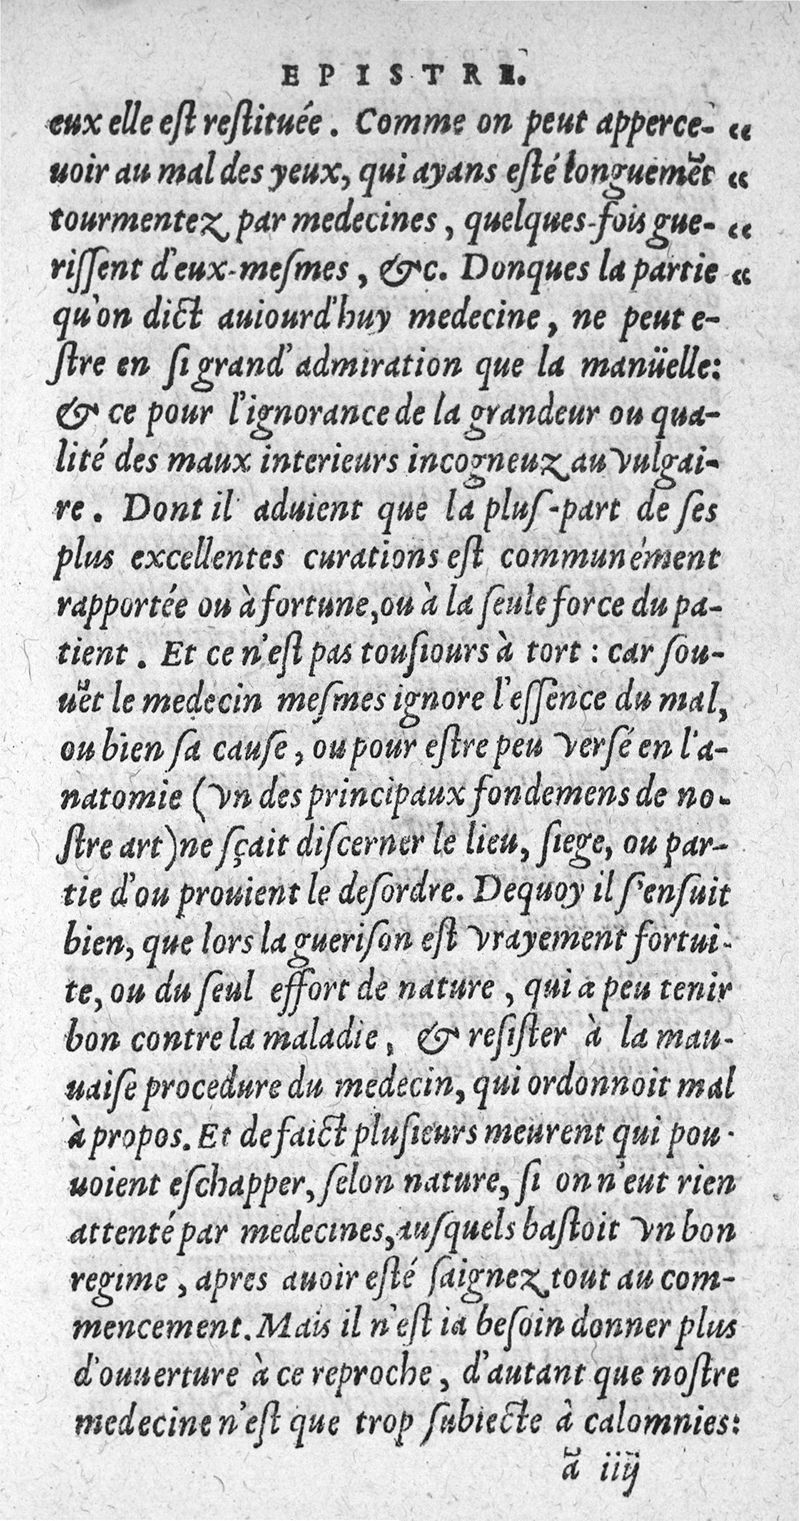 EPISTRE.
eux elle eſt reſtituée. Comme on peut apperce- “
uoir au mal des yeux, qui ayans eſté longuemēt “
tourmentez par medecines, quelques-fois gue- “
riſſent d'eux-meſmes, &c. Donques la partie “
qu'on dict auiourd'huy medecine, ne peut e-
ſtre en ſi grand' admiration que la manüelle:
& ce pour l'ignorance de la grandeur ou qua-
lité des maux interieurs incogneuz au vulgai-
re. Dont il aduient que la pluſ-part de ſes
plus excellentes curations eſt communément
rapportée ou à fortune, ou à la ſeule force du pa-
tient. Et ce n'eſt pas touſiours à tort: car ſou-
uēt le medecin meſmes ignore l'eſſence du mal,
ou bien ſa cauſe, ou pour eſtre peu verſé en l'a-
natomie (vn des principaux fondemens de no-
ſtre art) ne ſçait diſcerner le lieu, ſiege, ou par-
tie d'ou prouient le deſordre. Dequoy il ſ'enſuit
bien, que lors la gueriſon eſt vrayement fortui-
te, ou du ſeul effort de nature, qui a peu tenir
bon contre la maladie, & reſiſter à la mau-
uaiſe procedure du medecin, qui ordonnoit mal
à propos. Et de faict pluſieurs meurent qui pou-
uoient eſchapper, ſelon nature, ſi on n'eut rien
attenté par medecines, auſquels baſtoit vn bon
regime, apres auoir eſté ſaignez tout au com-
mencement. Mais il n'eſt ia beſoin donner plus
d'ouuerture à ce reproche, d'autant que noſtre
medecine n'eſt que trop ſubiecte à calomnies:
ā iiij